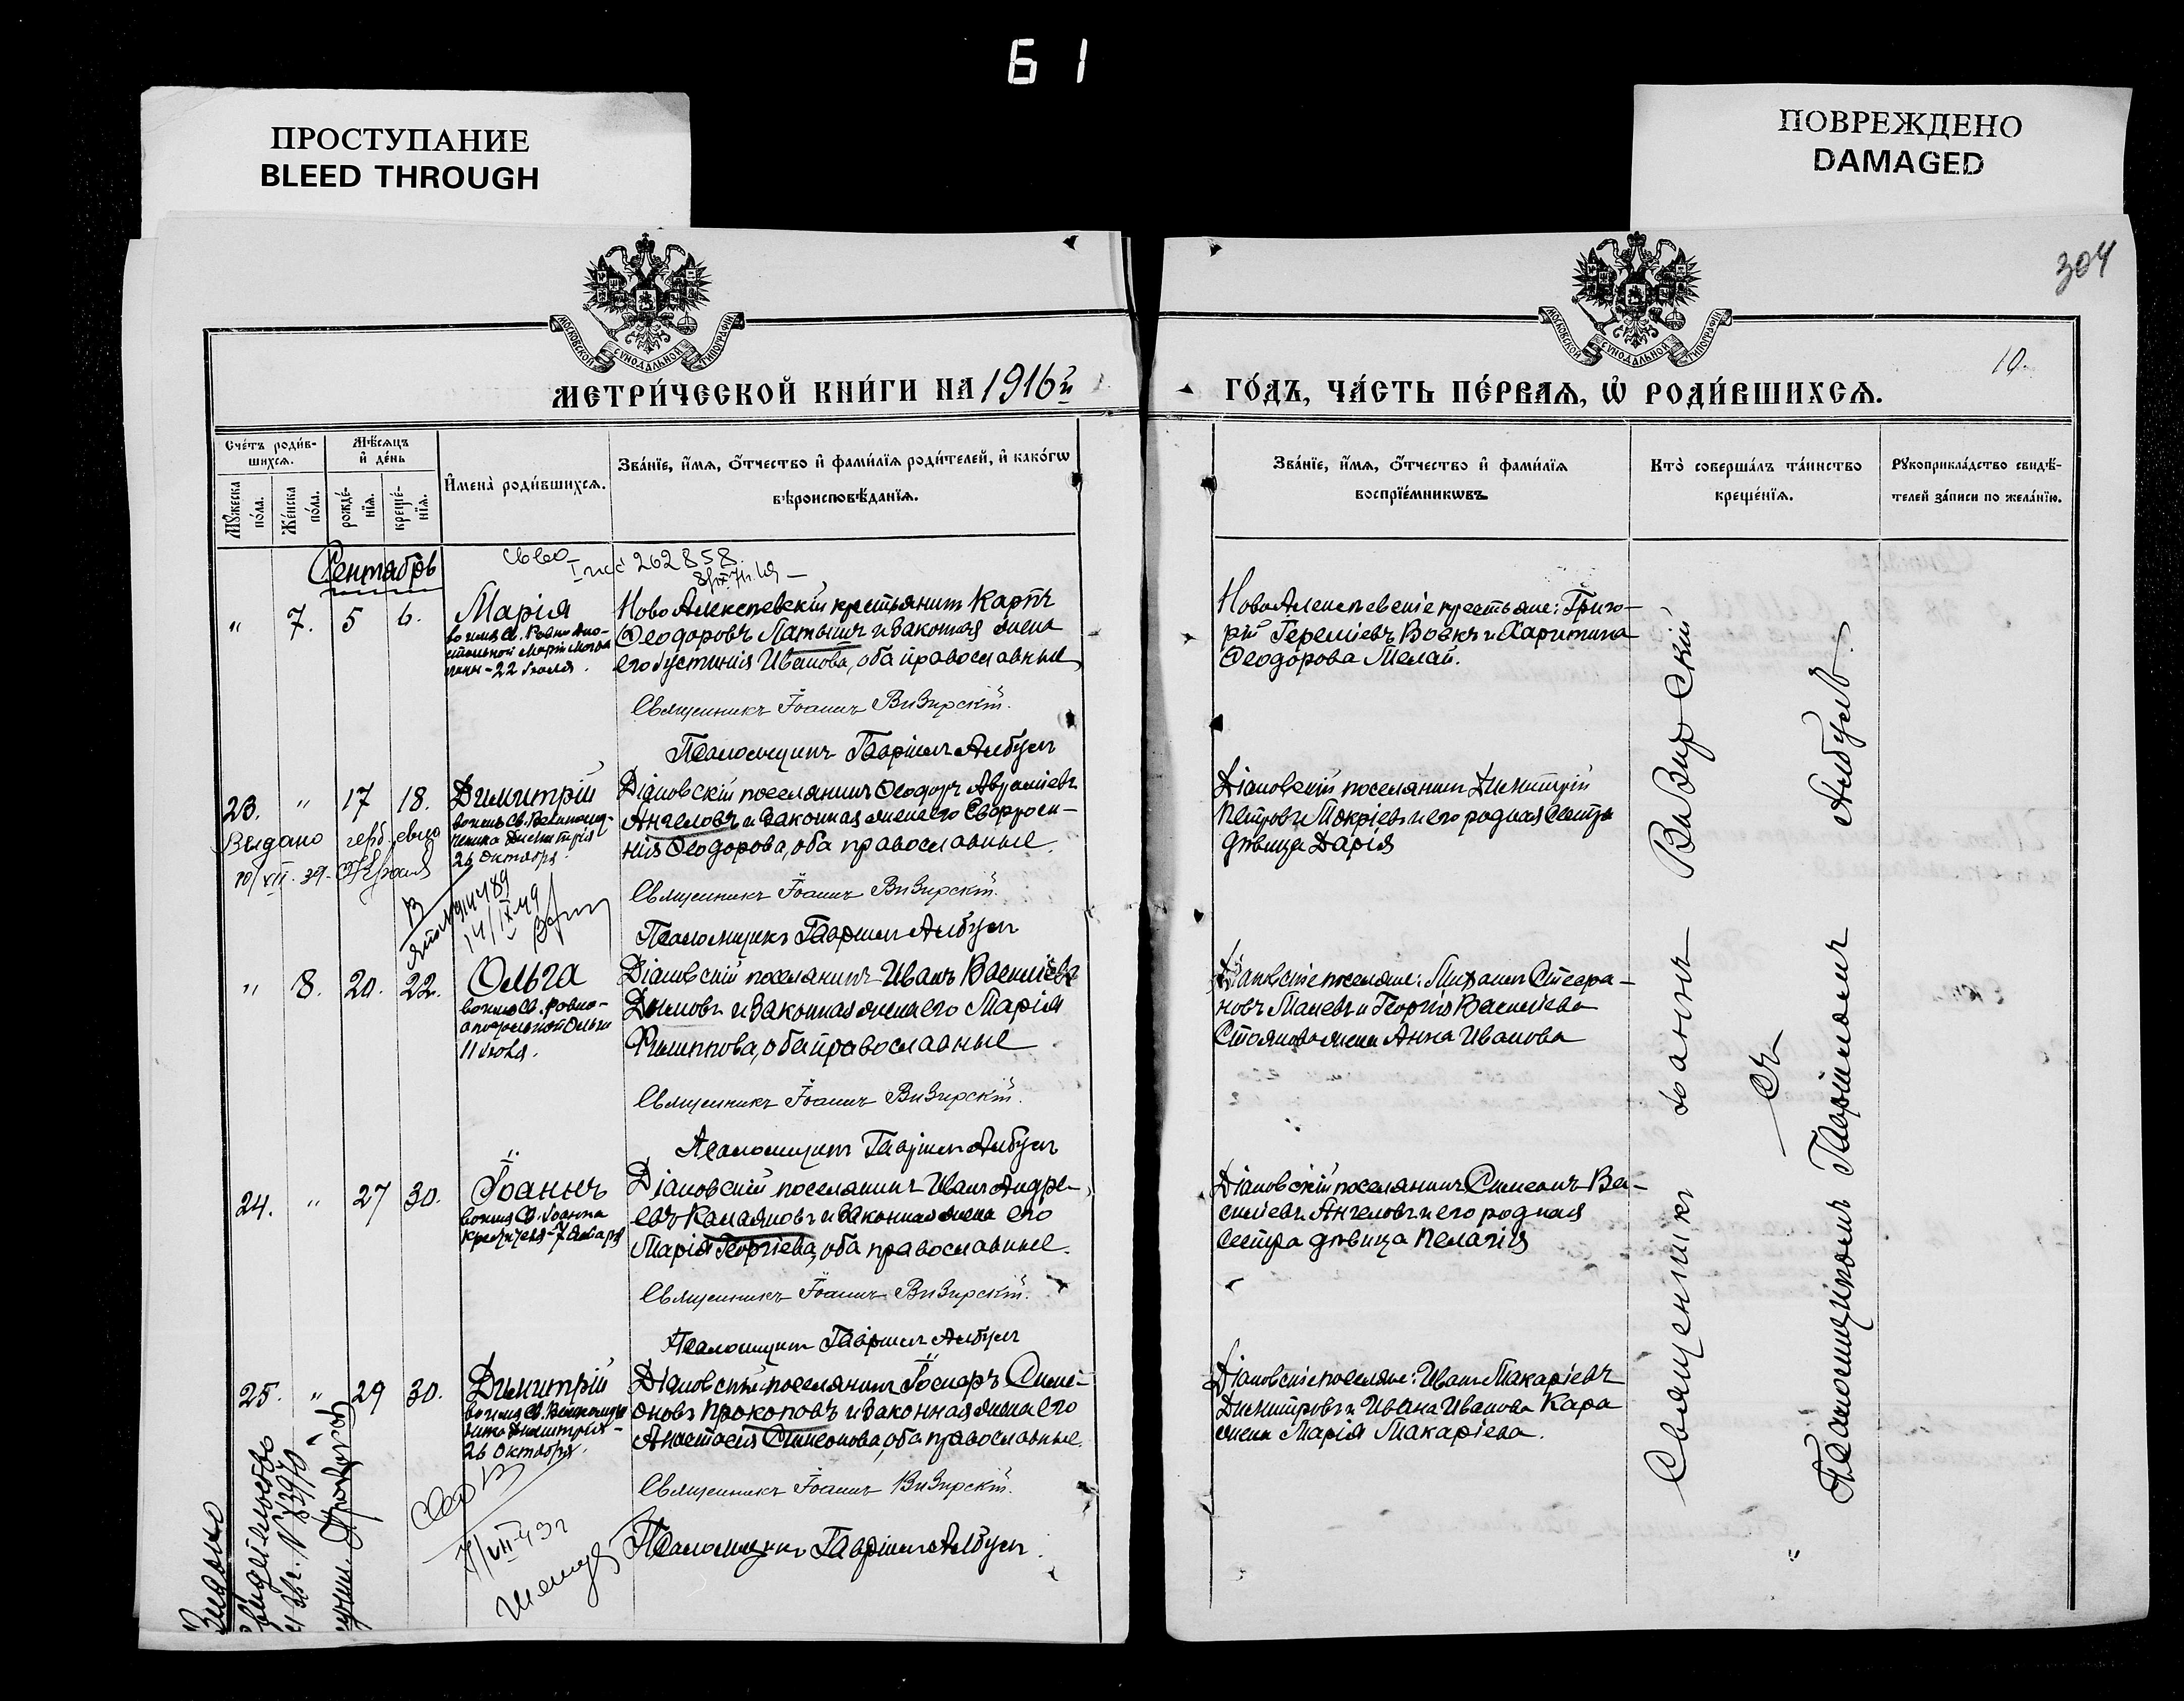 Б 1
ПРОСТУПАНИЕ
BLEED THROUGH
ПОВРЕЖДЕНО
DAMAGED
304
МОСКОВСКОЙ СѴНОДАЛЬНОЙ ТИПОГРАФІИ
МОСКОВСКОЙ СѴНОДАЛЬНОЙ ТИПОГРАФІИ
10.
МЕТРИ́ЧЕСКОЙ КНИ́ГИ НА 1916й
ГО́ДЪ, ЧА́СТЬ ПЕ́РВАѦ, Ѡ҆ РОДИ́ВШИХСѦ.
Сче́тъ роди́в-
шихсѧ.
Мѣ́сѧцъ
и҆ де́нь
Мꙋ́жеска
по́ла.
Же́нска
по́ла.
рожде́-
нїѧ.
креще́-
нїѧ.
И҆мена̀ роди́вшихсѧ.
Зва́нїе, и҆́мѧ, ѻ҆́тчество и҆ фами́лїѧ роди́телей, и҆ како́гѡ
вѣроисповѣ́данїѧ.
Зва́нїе, и҆́мѧ, ѻ҆́тчество и҆ фами́лїѧ
воспрїе́мникѡвъ.
Кто̀ соверша́лъ та́инство
креще́нїѧ.
Рꙋкоприкла́дство свидѣ́-
телей за́писи по жела́нїю.
Сентябрь
262858
" 7. 5 6. Марія
во имя Св. Равноапо-
стольной Маріи Магда
лины - 22 Іюля.
Ново Алексеевскій крестьянинъ Карпъ
Ѳеодоровъ Латышъ и законная жена
его Іустинія Иванова, оба православные
Священникъ Іоаннъ Визирскій.
Псаломщикъ Гавріилъ Албулъ
НовоАлексеевскіе крестьяне: Григо-
рій Іереміевъ Вовкъ и Харитина
Ѳеодорова Мелай.
23. " 17 18. Димитрій
во имя Св. Великому-
ченика Димитрія
26 Октября.
Діановскій поселянинъ Ѳеодоръ Авраміевъ
Ангеловъ и законная жена его Евфроси-
нія Ѳеодорова, оба православные.
Священникъ Іоаннъ Визирскій.
Псаломщикъ Гавріилъ Албулъ
Діановскій поселянинъ Димитрій
Петровъ Мокріевъ и его родная сестра
дѣвица Дарія
Выдано
10/XII. 39.
14/IX-49
" 8. 20. 22. Ольга
во имя Св. Равно-
апостольной Ольги
11 Іюля.
Діановскій поселянинъ Иванъ Василіевъ
Дымовъ и законная жена его Марія
Филиппова, оба православные
Священникъ Іоаннъ Визирскій.
Псаломщикъ Гавріилъ Албулъ
Діановскіе поселяне: Михаилъ Стефа-
новъ Маневъ и Георгія Василіева
Стоянова жена Анна Иванова
24. " 27 30. Іоаннъ
во имя Св. Іоанна
Крестителя - 7 Января
Діановскій поселянинъ Иванъ Андре-
евъ Калаяновъ и законная жена его
Марія Георгіева, оба православные.
Священникъ Іоаннъ Визирскій.
Псаломщикъ Гавріилъ Албулъ
Діановскій поселянинъ Симеонъ Ва-
силіевъ Ангеловъ и его родная
сестра дѣвица Пелагія
25. " 29 30. Димитрій
во имя Св. Великомуче
ника Димитрія -
26 Октября.
Діановскій поселянинъ Іосифъ Симе-
оновъ Прокоповъ и законная жена его
Анастасія Симеонова, оба православные.
Священникъ Іоаннъ Визирскій.
Псаломщикъ Гавріилъ Албулъ.
Діановскіе поселяне: Иванъ Макаріевъ
Димитровъ и Ивана Иванова Кара
жена Марія Макаріева.
Священникъ Іоаннъ Визирскій
Съ
Псаломщикомъ Гавріиломъ Албулъ.
Видано